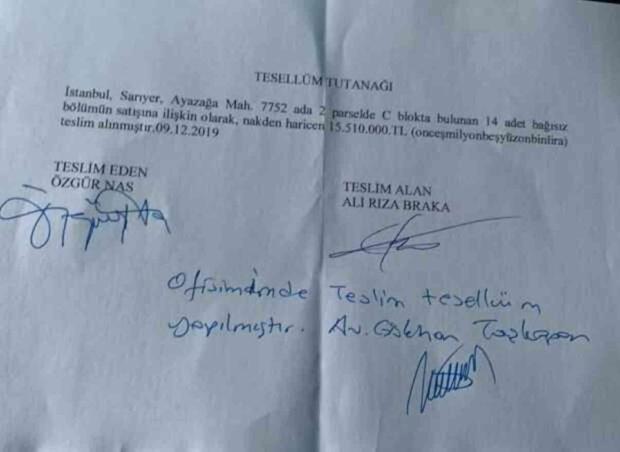 TESELLÜM TUTANAĞI
İstanbul, Sarıyer, Ayazağa Mah. 7752 ada 2 parselde C blokta bulunan 14 adet bağısız
bölümün satışına ilişkin olarak, nakden haricen 15.510.000.TL (onceşmilyonbeşyüzonbinlira)
teslim alınmıştır.09.12.2019
TESLİM EDEN
ÖZGÜR NAS
TESLİM ALAN
ALİ RIZA BRAKA
Ofisimimde Teslim tesellüm
yapılmıştır. Av. Gökhan Taşkapan